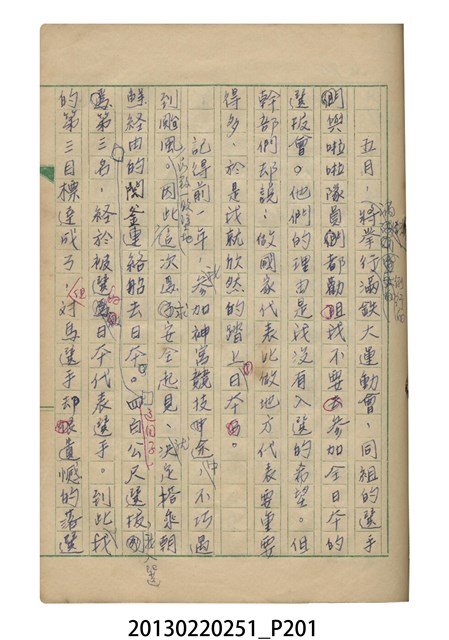 五月，將舉行滿鉄大運動會，同組的選手
們與啦啦隊員們都勸阻我不要去參加全日本的
選拔會。他們的理由是我沒有入選的希望。但
幹部們却說：做國家代表比做地方代表要重要
得多，於是我就欣然的踏上日本。
記得前一年，參加神宮競技中途，不巧遇
到颱風。因此這次為求安全起見，決定搭乘朝
鮮經由的関釜連絡船去日本。四百公尺選拔
為第三名，終於被選為日本代表選手。到此我
的第三目標達成了，但對馬選手却很遺憾的落選
這個
我入選
20130220251_P201